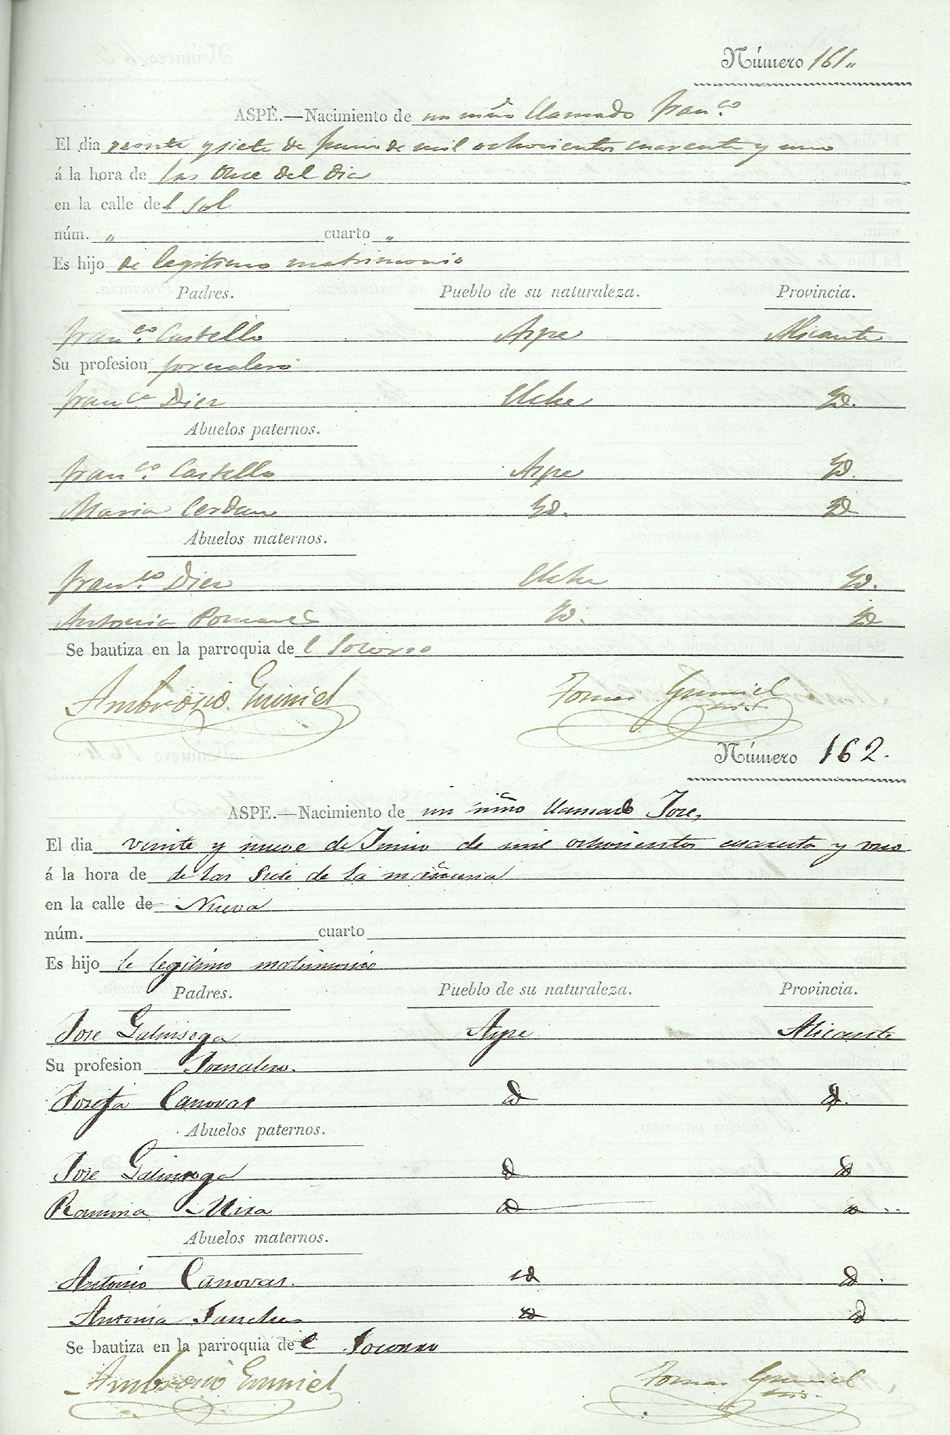 Número 161.
ASPE.—Nacimiento de un niño llamado Fran.co
El dia veinte y siete de Junio de mil ochocientos cuarenta y uno
á la hora de las Once del dia
en la calle del Sol
núm. „ cuarto „
Es hijo de legitimo matrimonio
Padres. Pueblo de su naturaleza. Provincia.
Fran.co Castello Aspe Alicante
Su profesion jornalero
Fran.ca Diez Elche Yd.
Abuelos paternos.
Fran.co Castello Aspe Yd.
Maria Cerdan Yd. Yd
Abuelos maternos.
Fran.co Diez Elche Yd.
Antonia Pomares Yd. Yd
Se bautiza en la parroquia del Socorro
Ambrosio Tomas
Número 162.
ASPE.—Nacimiento de un niño llamado Jose,
El dia veinte y nueve de Junio de mil ochocientos cuarenta y uno
á la hora de de las Siete de la mañana
en la calle de Nueva
núm. cuarto
Es hijo de legitimo matrimonio
Padres. Pueblo de su naturaleza. Provincia.
Jose Galinsoga Aspe Alicante
Su profesion Jornalero.
Josefa Canovas id id.
Abuelos paternos.
Jose Galinsoga id id
Ramona Mira id id
Abuelos maternos.
Antonio Canovas. id id.
Antonia Sanchez id id
Se bautiza en la parroquia del Socorro
Ambrosio Tomas